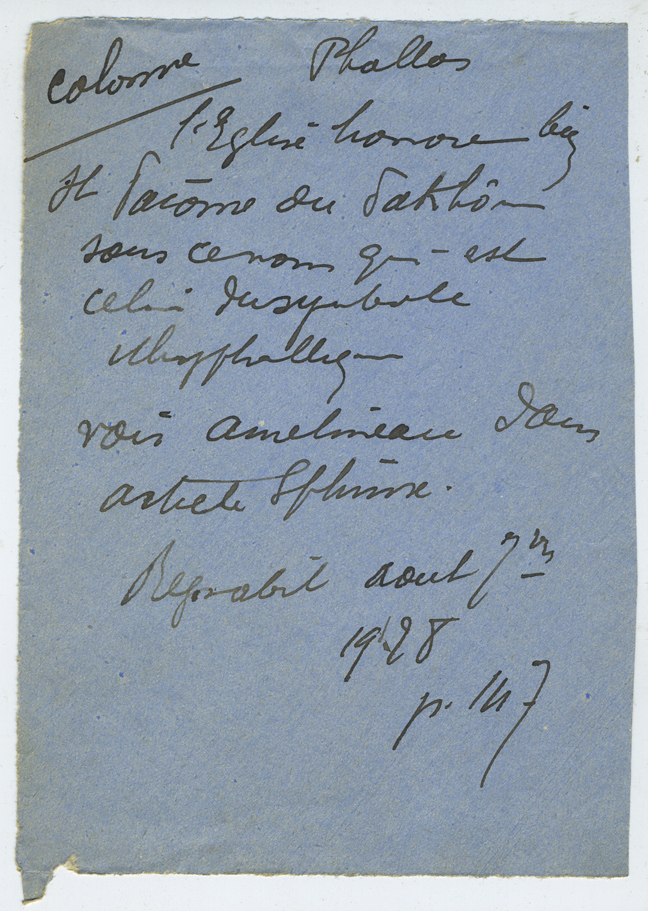 colonne Phallos
l'Eglise honore bien
St Pacôme ou Pakhôm
sous ce nom qui est
celui du symbole
ithyphallique
voir amelineau dans
article Sphinx.
aout 7bre
1928
p. 147